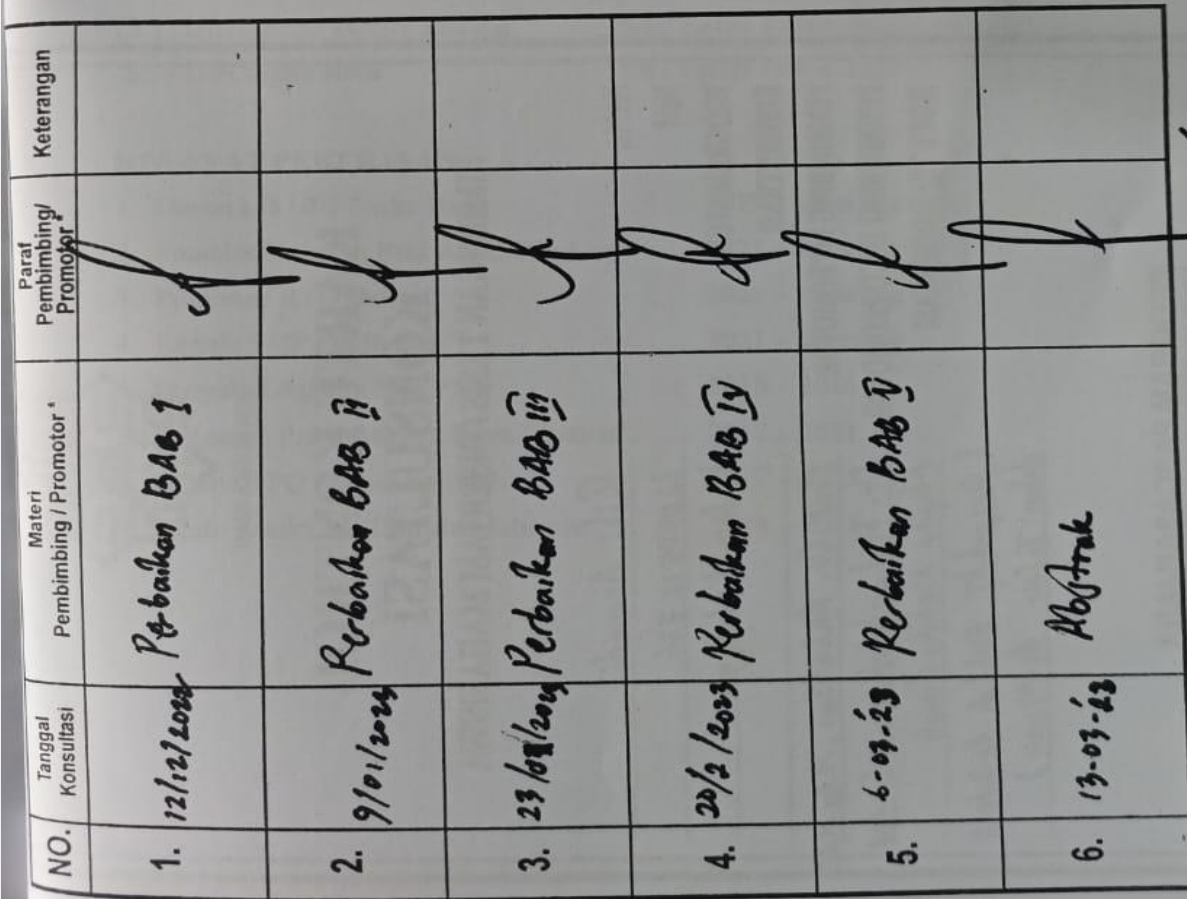 NO.
Tanggal
Konsultasi
Materi
Pembimbing / Promotor *
Paraf
Pembimbing/
Promotor *
Keterangan
1. 12/12/2022 Perbaikan BAB I
2. 9/01/2023 Perbaikan BAB II
3. 23/01/2023 Perbaikan BAB III
4. 20/2/2023 Perbaikan BAB IV
5. 6-03-'23 Perbaikan BAB V
6. 13-03-'23 Abstrak